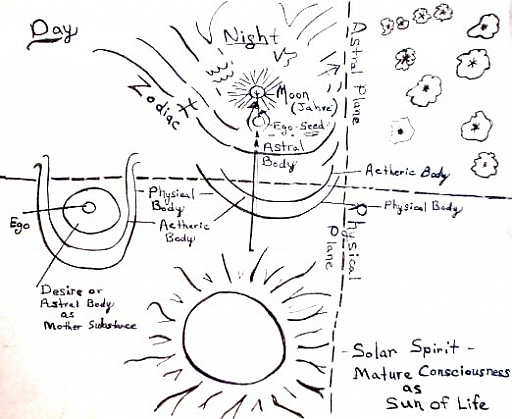 Day
Night
Zodiac
Moon
(Jahre)
Ego-Seed
Astral
Body
Astral Plane
Aetheric Body
Physical Body
Physical
Plane
Physical
Body
Aetheric
Body
Ego
Desire or
Astral Body
as
Mother Substance
- Solar Spirit -
Mature Consciousness
as
Sun of Life